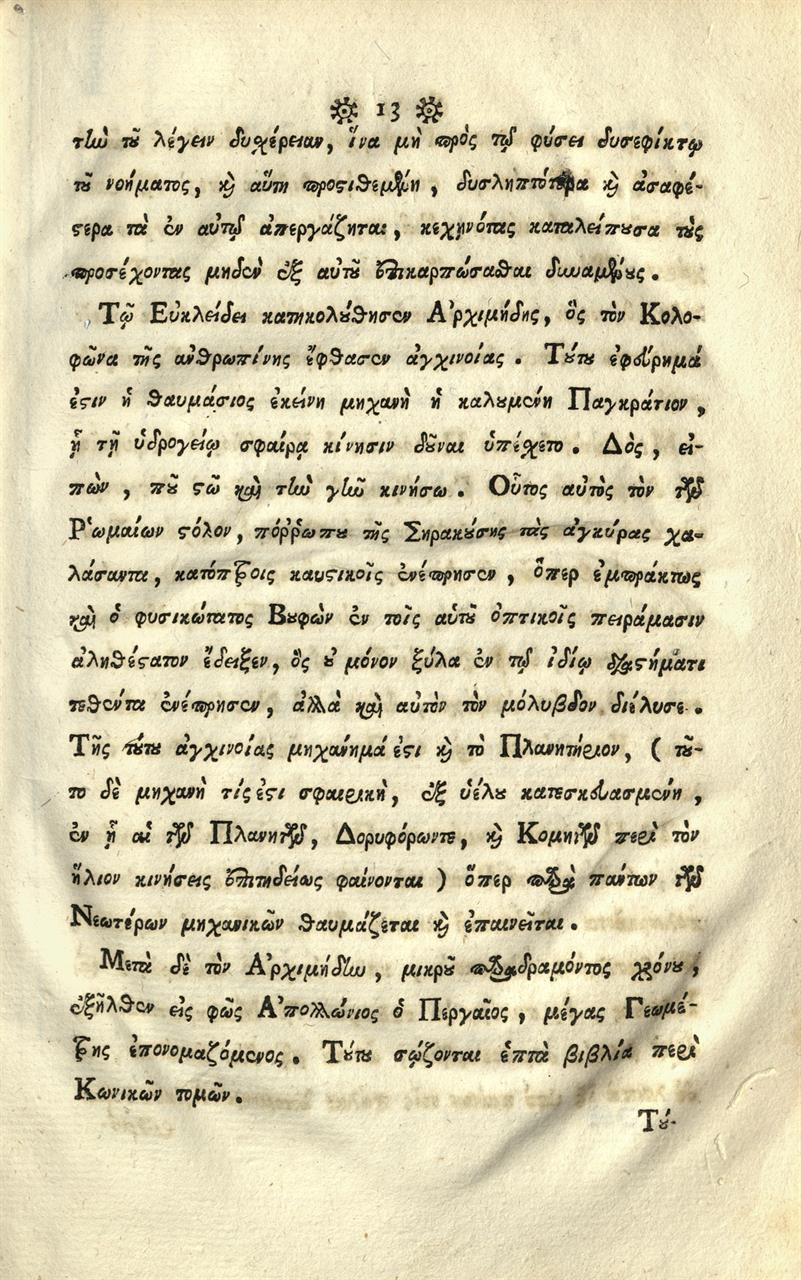 13
τὴν τοῦ λέγειν δυχέρειαν, ἵνα μὴ πρὸς τῷ φύσει δυσεφίκτῳ
τοῦ νοήματος, καὶ αὕτη προςτιθεμένη, δυσληπτότερα καὶ ἀσαφέ-
στερα τὰ ἐν αὐτῷ ἀπεργάζηται, κεχηνότας καταλείπουσα τοὺς
προσέχοντας μηδὲν ἐξ αὐτοῦ ἐπικαρπώσασθαι δυναμένους.
Τῷ Εὐκλείδει κατηκολούθησεν Ἀρχιμήδης, ὃς τὸν Κολο-
φῶνα τῆς ἀνθρωπίνης ἔφθασεν ἀγχινοίας. Τούτου ἐφεύρημά
ἐστιν ἡ θαυμάσιος ἐκείνη μηχανὴ ἡ καλουμένη Παγκράτιον,
ᾗ τῇ ὑδρογείῳ σφαίρᾳ κίνησιν δοῦναι ὑπέσχετο. Δὸς, εἰ-
πὼν, ποῦ στῶ καὶ τὴν γῆν κινήσω. Οὗτος αὐτὸς τὸν τῶν
Ῥωμαίων στόλον, πόῤῥωπου τῆς Σηρακούσης τὰς ἀγκύρας χα-
λάσαντα, κατόπτροις καυστικοῖς ἐνέπρησεν, ὅπερ ἐμπράκτως
καὶ ὁ φυσικώτατος Βουφὼν ἐν τοῖς αὑτοῦ ὀπτικοῖς πειράμασιν
ἀληθέστατον ἔδειξεν, ὃς οὐ μόνον ξύλα ἐν τῷ ἰδίῳ διαστήματι
τεθέντα ἐνέπρησεν, ἀλλὰ καὶ αὐτὸν τὸν μόλυβδον διέλυσε.
Τῆς τούτου ἀγχινοίας μηχάνημά ἐστι καὶ τὸ Πλανητήριον, (τοῦ-
το δὲ μηχανὴ τίς ἐστι σφαιρικὴ, ἐξ ὑέλου κατεσκευασμένη,
ἐν ᾗ αἱ τῶν Πλανητῶν, Δορυφόρωντε, καὶ Κομητῶν περὶ τὸν
ἥλιον κινήσεις ἐπιτηδείως φαίνονται) ὅπερ παρὰ πάντων τῶν
Νεωτέρων μηχανικῶν θαυμάζεται καὶ ἐπαινεῖται.
Μετὰ δὲ τὸν Ἀρχιμήδην, μικροῦ παραδραμόντος χρόνου,
ἐξῆλθεν εἰς φῶς Ἀπολλώνιος ὁ Περγαῖος, μέγας Γεωμέ-
τρης ἐπονομαζόμενος. Τούτου σῴζονται ἑπτὰ βιβλία περὶ
Κωνικῶν τομῶν.
Τού-